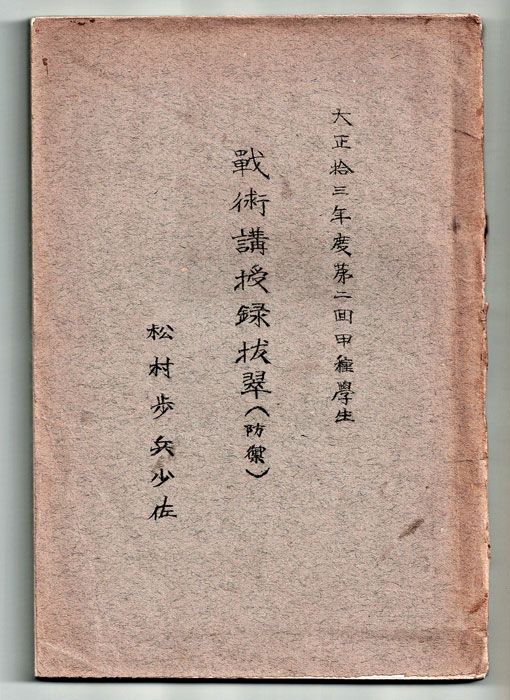 大正拾三年度第二回甲種學生
戰術講授録拔翠（防禦）
松村歩兵少佐